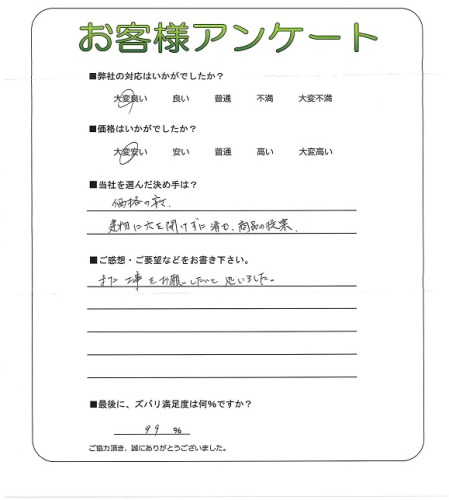 お客様アンケート
■弊社の対応はいかがでしたか？
大変良い　良い　普通　不満　大変不満
■価格はいかがでしたか？
大変安い　安い　普通　高い　大変高い
■当社を選んだ決め手は？
価格の安さ、
建物に穴を開けずに済む、商品の提案、
■ご感想・ご要望などをお書き下さい。
また工事をお願いしたいと思いました。
■最後に、ズバリ満足度は何％ですか？
99 ％
ご協力頂き、誠にありがとうございました。